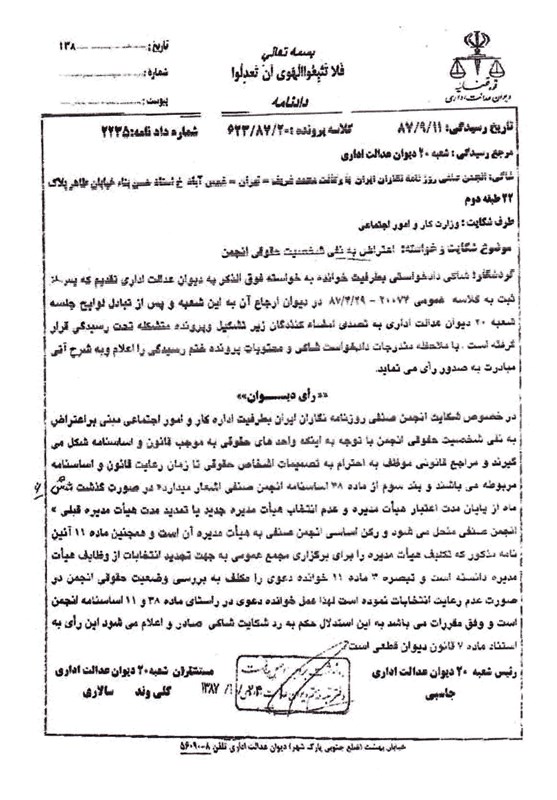 بسمه تعالی
فَلا تَتَّبِعُوا الْهَوی اَنْ تَعدِلُوا
دادنامه
تاریخ: ۱۳۸
شماره:
پیوست:
قوه قضائیه
دیوان عدالت اداری
تاریخ رسیدگی: ۸۷/۹/۱۱ کلاسه پرونده: ۶۲۳/۸۷/۲۰ شماره داد نامه: ۲۲۳۵
مرجع رسیدگی: شعبه ۲۰ دیوان عدالت اداری
شاکی: انجمن صنفی روز نامه نگاران ایران با وکالت محمد شریف = تهران = عباس آباد خ استاد حسن بناء خیابان طاهر پلاک
۲۲ طبقه دوم
طرف شکایت: وزارت کار و امور اجتماعی
موضوع شکایت و خواسته: اعتراض به نفی شخصیت حقوقی انجمن
گردشکار: شاکی دادخواستی بطرفیت خوانده به خواسته فوق الذکر به دیوان عدالت اداری تقدیم که پس از
ثبت به کلاسه عمومی ۲۰۰۷۷ - ۸۷/۴/۲۹ در دیوان ارجاع آن به این شعبه و پس از تبادل لوایح جلسه
شعبه ۲۰ دیوان عدالت اداری به تصدی امضاء کنندگان زیر تشکیل و پرونده متشکله تحت رسیدگی قرار
گرفته است. با ملاحظه مندرجات دادخواست شاکی و محتویات پرونده ختم رسیدگی را اعلام و به شرح آتی
مبادرت به صدور رأی می نماید.
««رأی دیــوان»»
در خصوص شکایت انجمن صنفی روزنامه نگاران ایران بطرفیت اداره کار و امور اجتماعی مبنی بر اعتراض
به نفی شخصیت حقوقی انجمن با توجه به اینکه واحد های حقوقی به موجب قانون و اساسنامه شکل می
گیرند و مراجع قانونی موظف به احترام به تصمیمات اشخاص حقوقی تا زمان رعایت قانون و اساسنامه
مربوطه می باشند و بند سوم از ماده ۳۸ اساسنامه انجمن صنفی اشعار میدارد« در صورت گذشت شش ۶
ماه از پایان مدت اعتبار هیأت مدیره و عدم انتخاب هیأت مدیره جدید یا تمدید مدت هیأت مدیره قبلی »
انجمن صنفی منحل می شود و رکن اساسی انجمن صنفی به هیأت مدیره آن است و همچنین ماده ۱۱ آئین
نامه مذکور که تکلیف هیأت مدیره را برای برگزاری مجمع عمومی به جهت تجدید انتخابات از وظایف هیأت
مدیره دانسته است و تبصره ۳ ماده ۱۱ خوانده دعوی را مکلف به بررسی وضعیت حقوقی انجمن در
صورت عدم رعایت انتخابات نموده است لهذا عمل خوانده دعوی در راستای ماده ۳۸ و ۱۱ اساسنامه انجمن
است و وفق مقررات می باشد به این استدلال حکم به رد شکایت شاکی صادر و اعلام می شود این رأی به
استناد ماده ۷ قانون دیوان قطعی است
رئیس شعبه ۲۰ دیوان عدالت اداری مستشاران شعبه ۲۰ دیوان عدالت اداری
جاسبی گلی وند سالاری
خیابان بهشت (ضلع جنوبی پارک شهر) دیوان عدالت اداری تلفن ۸-۵۶۰۹۰